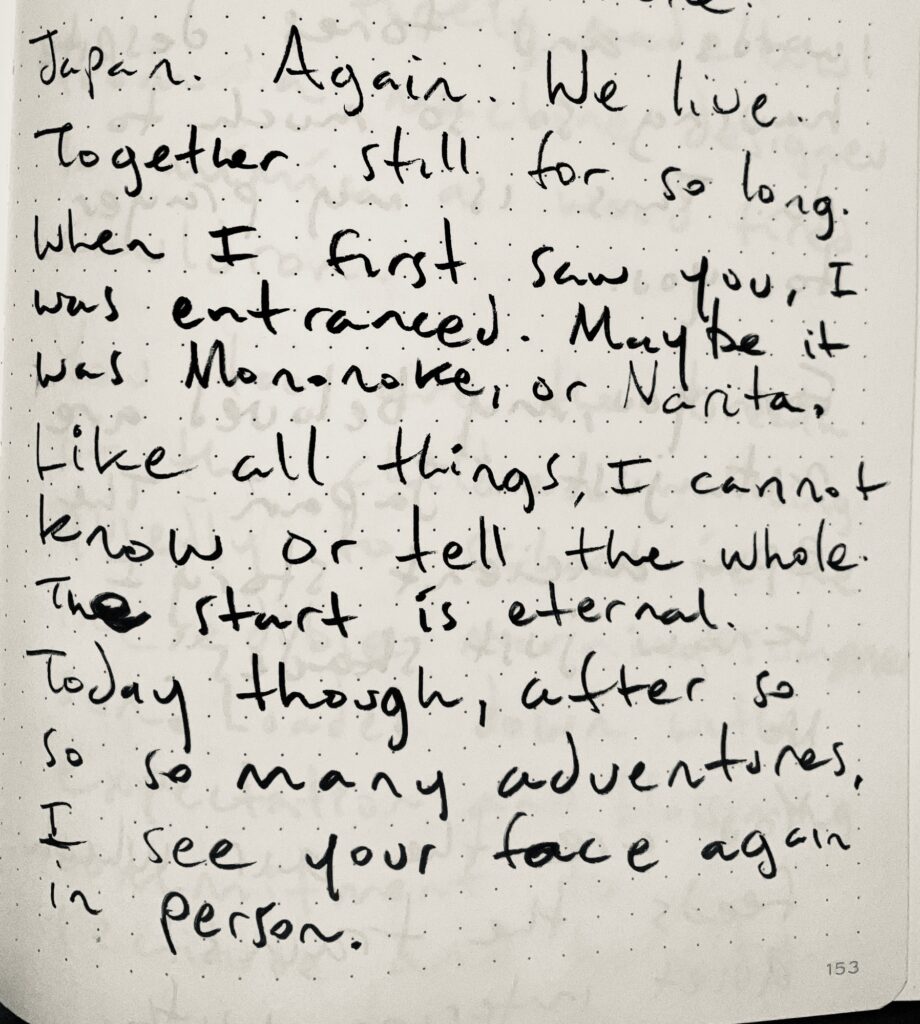 Japan. Again. We live
Together still for so long.
When I first saw you, I
was entranced. Maybe it
was Mononoke, or Narita.
Like all things, I cannot
know or tell the whole.
The start is eternal.
Today though, after so
so so many adventures,
I see your face again
in person.
153